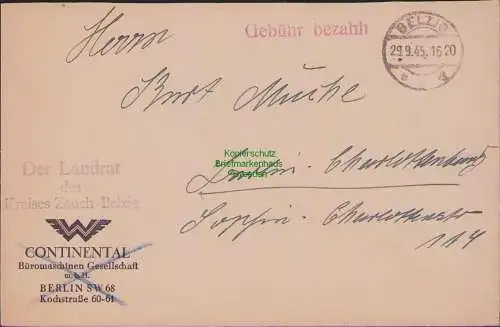 Gebühr bezahlt
BELZIG
29.9.45.16-20
a
Herrn
Kurt Mucke
Kopierschutz
Briefmarkenhaus
Berlin-Charlottenburg
Sophie-Charlottenstr
114
Der Landrat
des
Kreises Zauch-Belzig
W
CONTINENTAL
Büromaschinen Gesellschaft
m.b.H.
BERLIN SW 68
Kochstraße 60-61